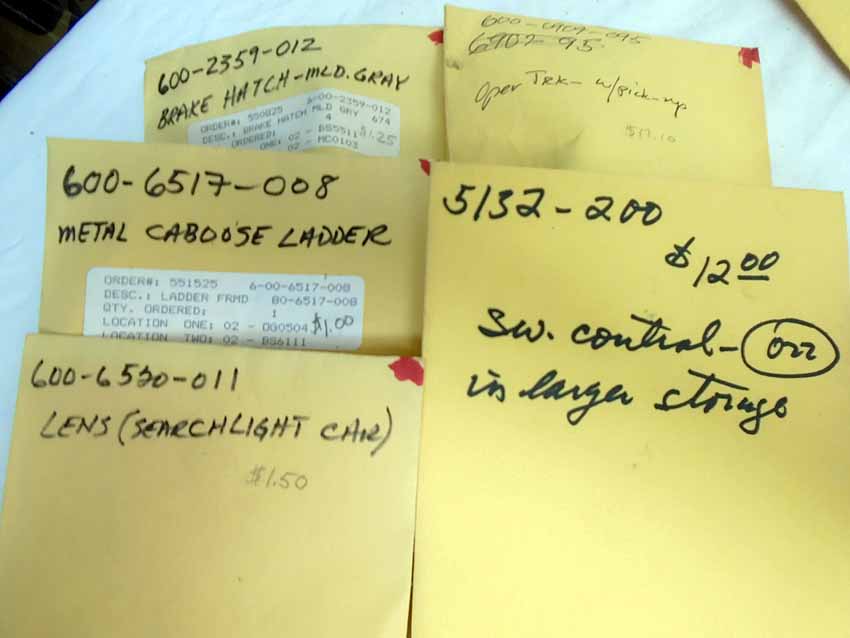 600-2359-012
BRAKE HATCH-MLD. GRAY
ORDER#: 550825 6-00-2359-012
DESC.: BRAKE HATCH MLD GRY 674
ORDERED: 4
ONE: 02 - BS5511 $1.25
02 - MC0103
600-6902-095
6902-95
Oper Trk- w/pick-up
$17.10
600-6517-008
METAL CABOOSE LADDER
ORDER#: 551525 6-00-6517-008
DESC.: LADDER FRMD 80-6517-008
QTY. ORDERED: 1
LOCATION ONE: 02 - OG0504 $1.00
LOCATION TWO: 02 - BS6111
5132-200
$12.00
Sw. control- 022
in larger storage
600-6520-011
LENS (SEARCHLIGHT CAR)
$1.50